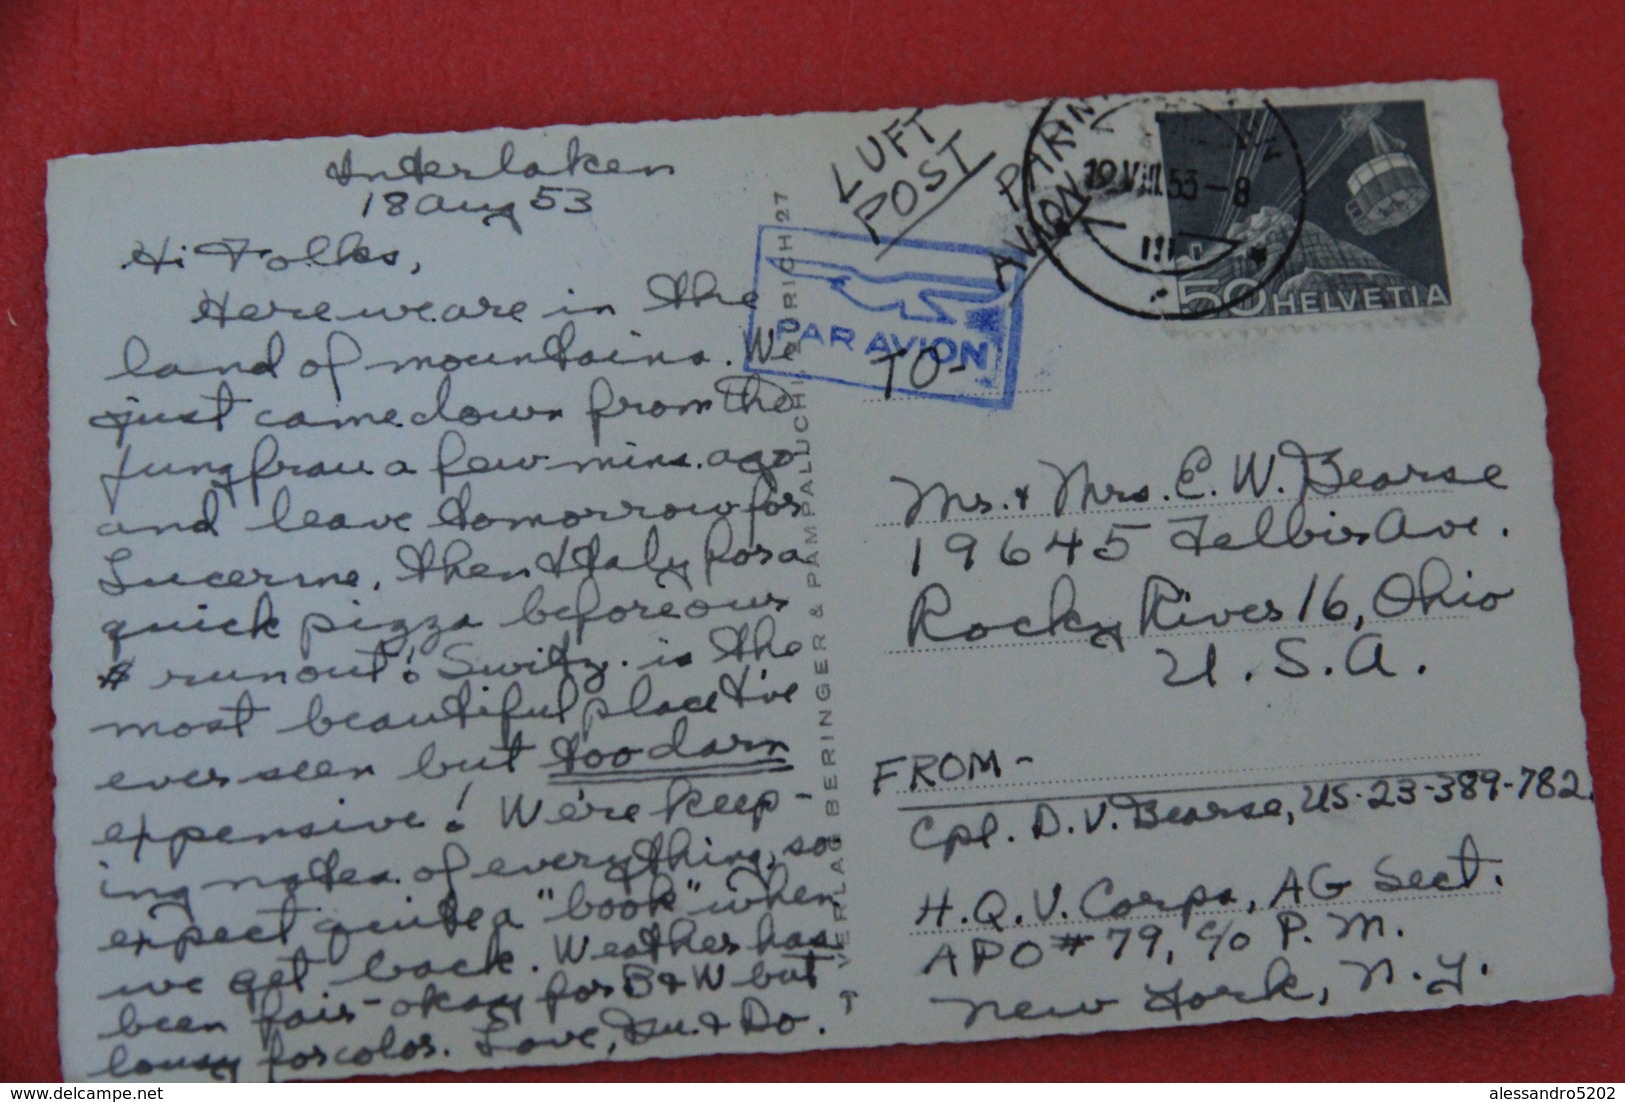 Interlaken
18 Aug 53
Hi Folks,
Here we are in the
land of mountains. We
just came down from the
Jungfrau a few mins. ago
and leave tomorrow for
Lucerne, then Italy for a
quick pizza before our
$ run out! Switz. is the
most beautiful place I've
ever seen but too darn
expensive! We're keep-
ing notes of everything, so
expect quite a "book" when
we get back. Weather has
been fair - okay for B & W but
lousy for color. Love, & Do.
VERLAG BERINGER & PAMPALUCHI ZÜRICH 27
LUFT
POST
PAR
AVION
PAR AVION
19.VIII.53-8
50 HELVETIA
TO-
Mr. & Mrs. E. W. Bearse
19645 Telbir Ave.
Rocky River 16, Ohio
U.S.A.
FROM-
Cpl. D. V. Bearse, US-23-389-782
H.Q. V. Corps, AG Sect.
APO # 79, c/o P.M.
New York, N.Y.
delcampe.net
alessandro5202